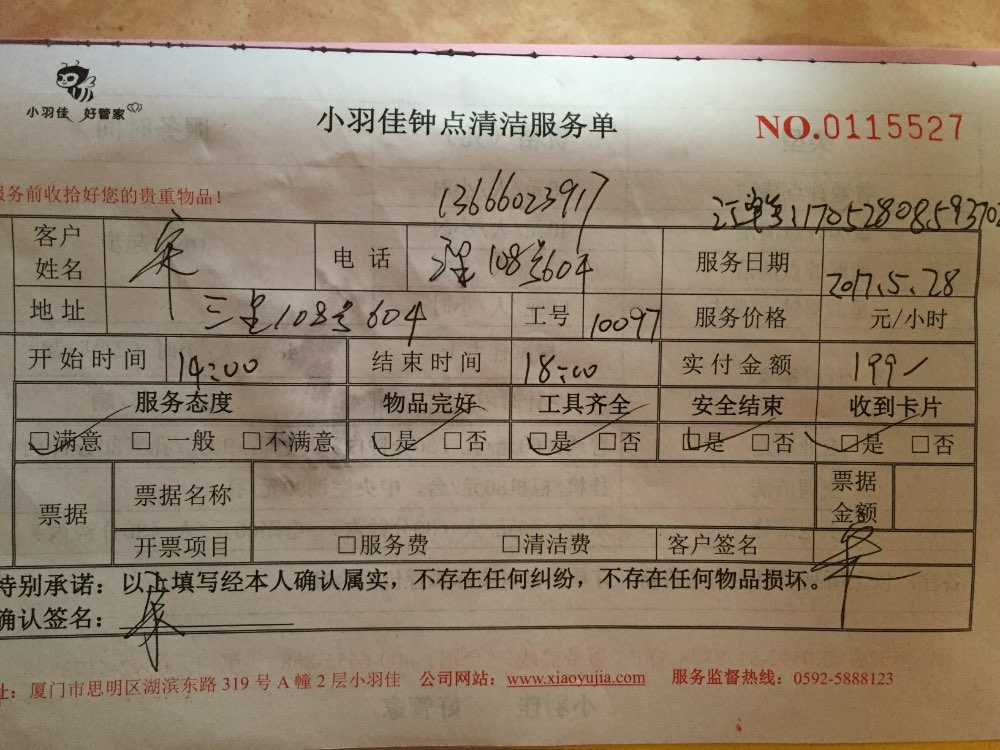 小羽佳 好管家
小羽佳钟点清洁服务单
NO.0115527
服务前收拾好您的贵重物品！
13666023917
订单号11705280859370
客户姓名 宋 电话 108号604 服务日期 2017.5.28
地址 三里108号604 工号 10097 服务价格 元/小时
开始时间 14:00 结束时间 18:00 实付金额 199
服务态度 物品完好 工具齐全 安全结束 收到卡片
□满意 □一般 □不满意 □是 □否 □是 □否 □是 □否 □是 □否
票据 票据名称 票据金额
开票项目 □服务费 □清洁费 客户签名
特别承诺：以上填写经本人确认属实，不存在任何纠纷，不存在任何物品损坏。
确认签名：
址：厦门市思明区湖滨东路 319 号 A 幢 2 层小羽佳 公司网站：www.xiaoyujia.com 服务监督热线：0592-5888123